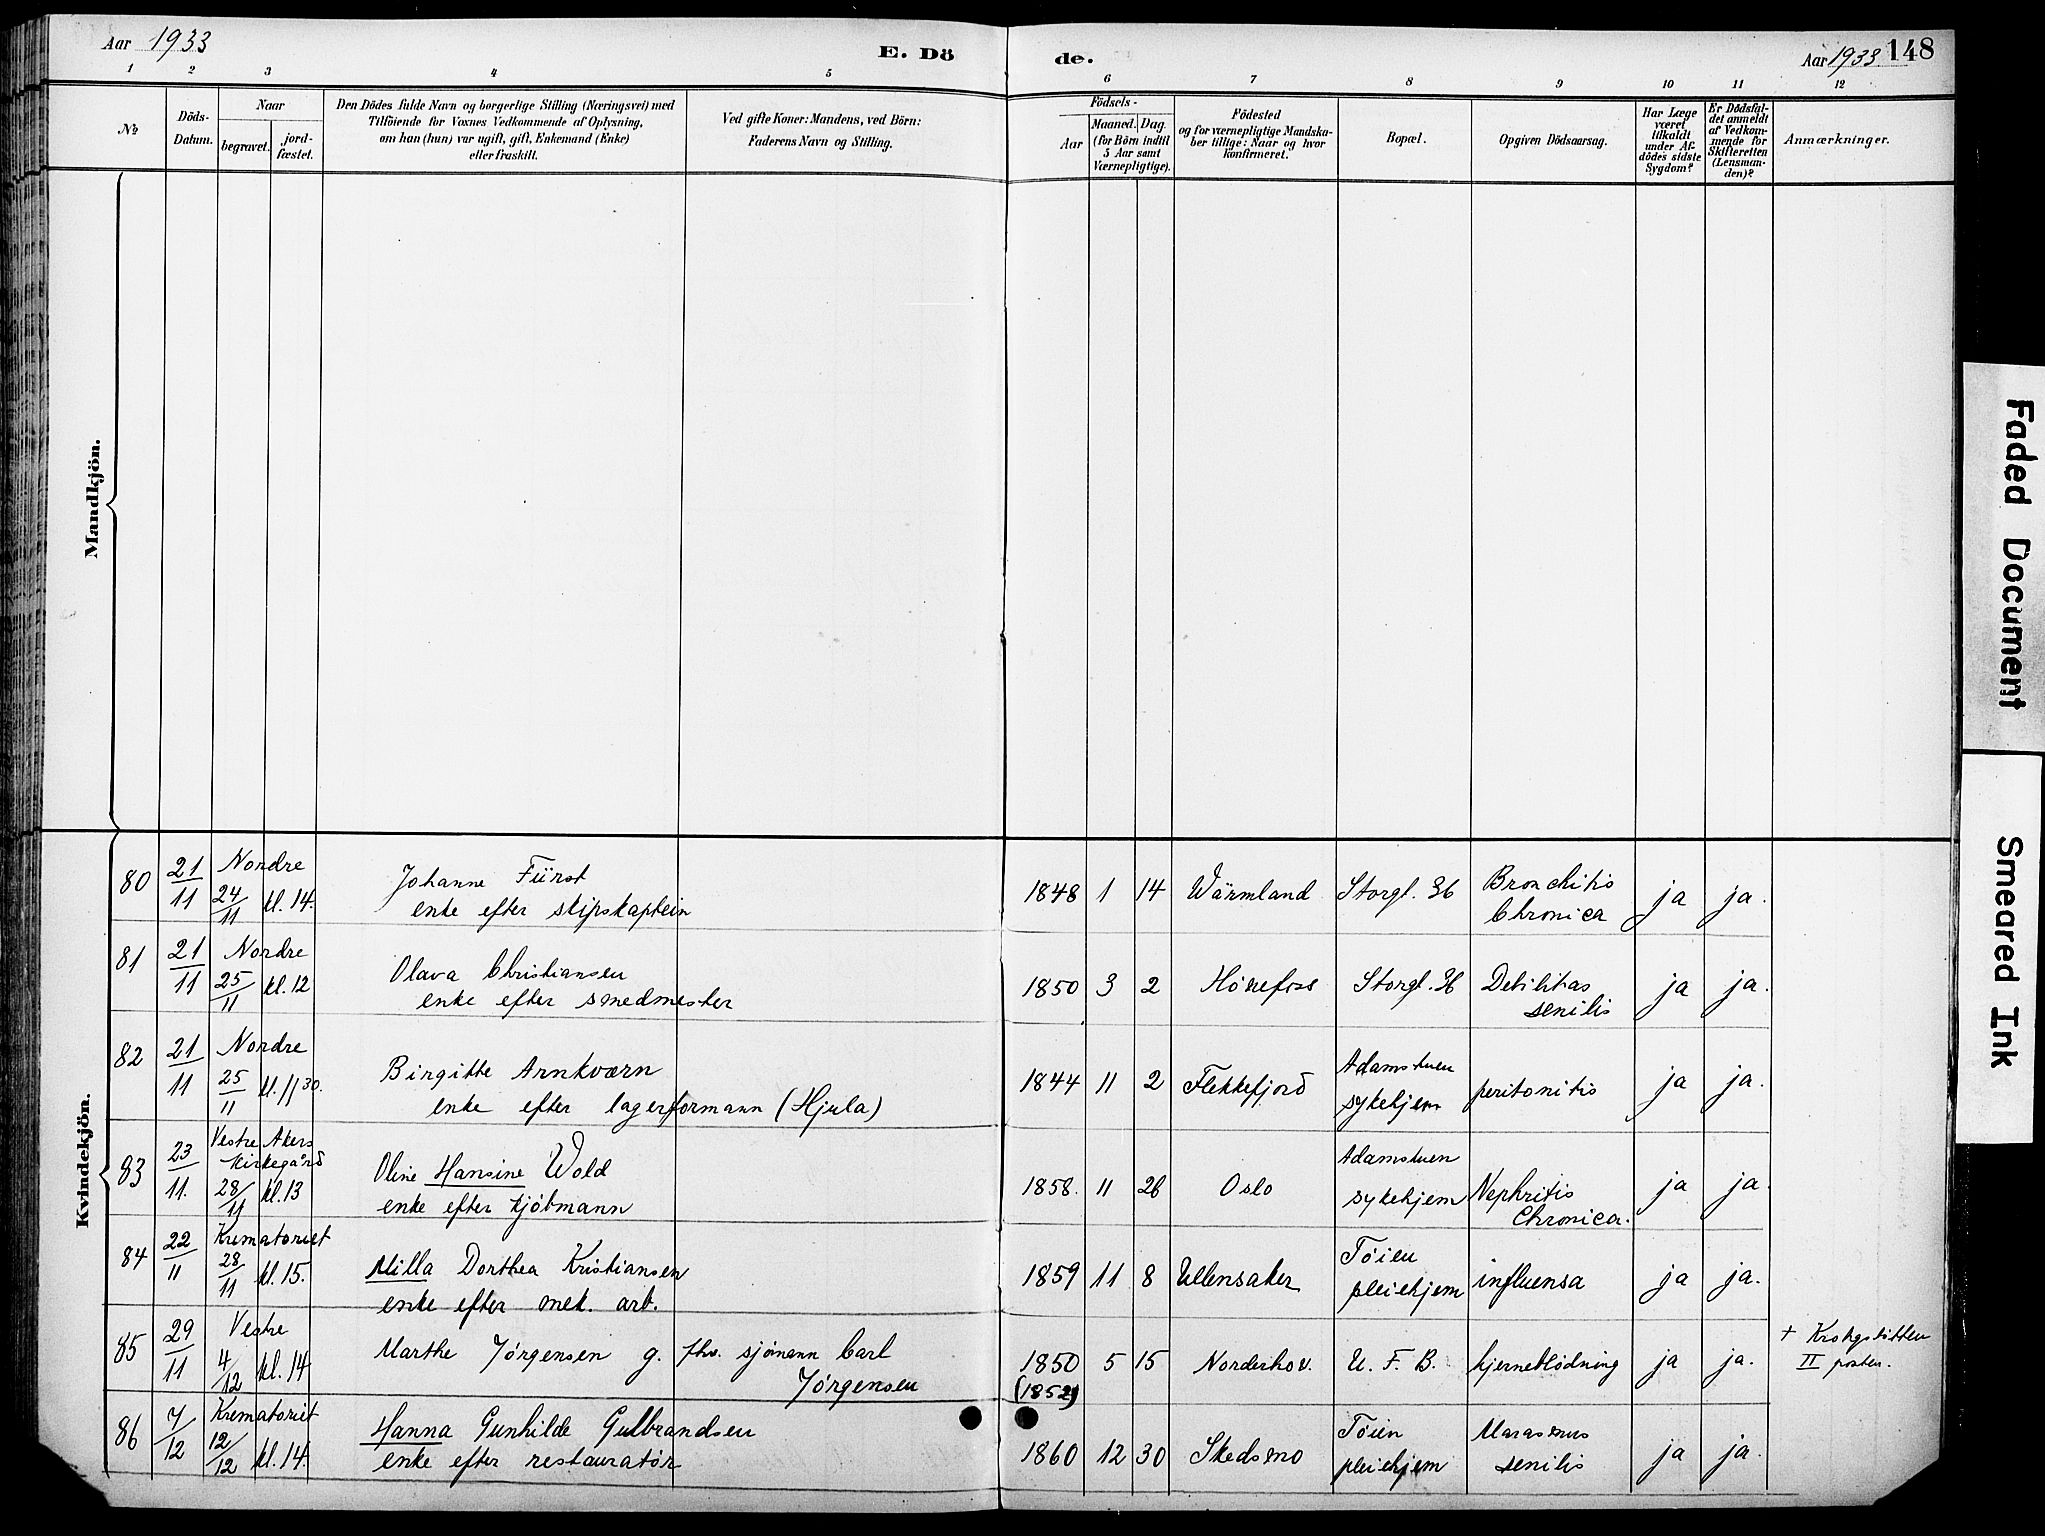 Aar 1933
E. Dö
de.
Aar 1933
148
1 2 3 4 5 6 7 8 9 10 11 12
№
Döds-
Datum.
Naar
begravet.
jord-
fæstet.
Den Dödes fulde Navn og borgerlige Stilling (Næringsvei) med
Tilföiende for Voxnes Vedkommende af Oplysning,
om han (hun) var ugift, gift, Enkemand (Enke)
eller fraskilt.
Ved gifte Koner: Mandens, ved Börn:
Faderens Navn og Stilling.
Födsels-
Aar
Maaned. Dag.
(for Börn indtil
5 Aar samt
Værnepligtige).
Födested
og for værnepligtige Mandska-
ber tillige: Naar og hvor
konfirmeret.
Bopæl.
Opgiven Dödsaarsag.
Har Læge
været
tilkaldt
under Af-
dödes sidste
Sygdom?
Er Dödsfal-
det anmeldt
af Vedkom-
mende for
Skifteretten
(Lensman-
den)?
Anmærkninger.
Mandkjön.
Kvindekjön.
80 21/11 Nordre 24/11 kl. 14. Johanne Fürst
enke efter skipskaptein
1848 1 14 Wärmland Storgt. 36 Bronchitis
Chronica ja ja.
81 21/11 Nordre 25/11 kl. 12 Olava Christiansen
enke efter smedmester
1850 3 2 Hönefoss Storgt. 36 Debilitas
senilis ja ja.
82 21/11 Nordre 25/11 kl. 11 30. Birgitte Arnkværn
enke efter lagerformann (Hjula)
1844 11 2 Flekkefjord Adamstuen
sykehjem peritonitis ja ja.
83 23/11. Vestre Akers
Kirkegård 28/11 kl. 13 Oline Hansine Wold
enke efter kjøbmann
1858. 11 26 Oslo Adamstuen
sykehjem Nephritis
Chronica. ja ja.
84 22/11 Krematoriet 28/11 kl. 15. Milla Dorthea Kristiansen
enke efter mek. arb.
1859 11 8 Ullensaker Tøien
pleiehjem influensa ja ja.
85 29/11 Vestre 4/12 kl. 14 Marthe Jørgensen g. fhv. sjømann Carl
Jørgensen
1850 5 15 Norderhov. U. F. B. hjerneblødning ja ja.
(1852)
+ Krohgstøtten
II posten.
86 7/12 Krematoriet 12/12 kl. 14. Hanna Gunhilde Gulbrandsen
enke efter restauratør
1860 12 30 Skedsmo Tøien
pleiehjem Marasmus
senilis ja ja.
Faded Document
Smeared Ink